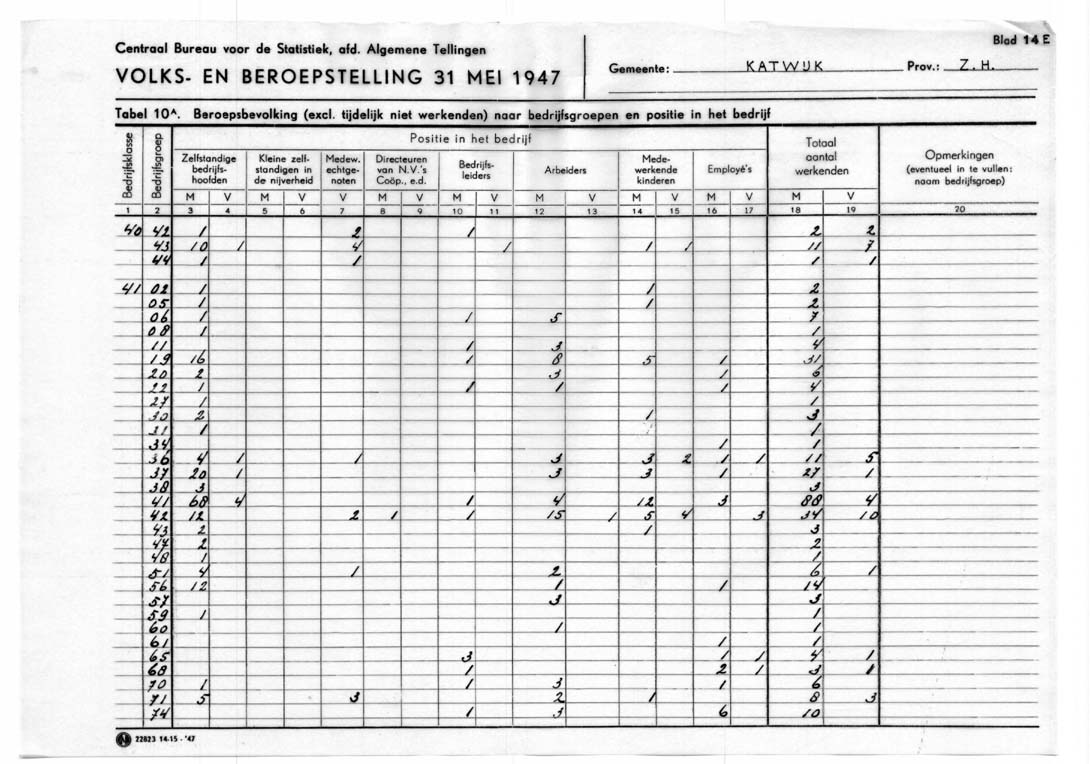 Blad 14 E
Centraal Bureau voor de Statistiek, afd. Algemene Tellingen
VOLKS- EN BEROEPSTELLING 31 MEI 1947
Gemeente: KATWIJK Prov.: Z.H.
Tabel 10ᴬ. Beroepsbevolking (excl. tijdelijk niet werkenden) naar bedrijfsgroepen en positie in het bedrijf
Bedrijfsklasse Bedrijfsgroep Positie in het bedrijf Totaal aantal werkenden Opmerkingen (eventueel in te vullen: naam bedrijfsgroep)
Zelfstandige bedrijfshoofden Kleine zelfstandigen in de nijverheid Medew. echtgenoten Directeuren van N.V.'s Coöp., e.d. Bedrijfsleiders Arbeiders Medewerkende kinderen Employé's
M V M V V M V M V M V M V M V M V
1 2 3 4 5 6 7 8 9 10 11 12 13 14 15 16 17 18 19 20
40 42 1 2 1 2 2
43 10 1 4 1 1 1 11 7
44 1 1 1 1
41 02 1 1 2
05 1 1 2
06 1 1 5 7
08 1 1
11 1 3 4
19 16 1 8 5 1 31
20 2 3 1 6
22 1 1 1 1 4
27 1 1
30 2 1 3
31 1 1
34 1 1
36 4 1 1 3 3 2 1 1 11 5
37 20 1 3 3 1 27 1
38 3 3
41 68 4 1 4 12 3 88 4
42 12 2 1 1 15 1 5 4 3 34 10
43 2 1 3
44 2 2
48 1 1
51 4 1 2 6 1
56 12 1 1 14
57 3 3
59 1 1
60 1 1
61 1 1
65 3 1 1 4 1
68 1 2 1 3 1
70 1 1 3 1 6
71 5 3 2 1 8 3
74 1 3 6 10
22823 14-15 - '47